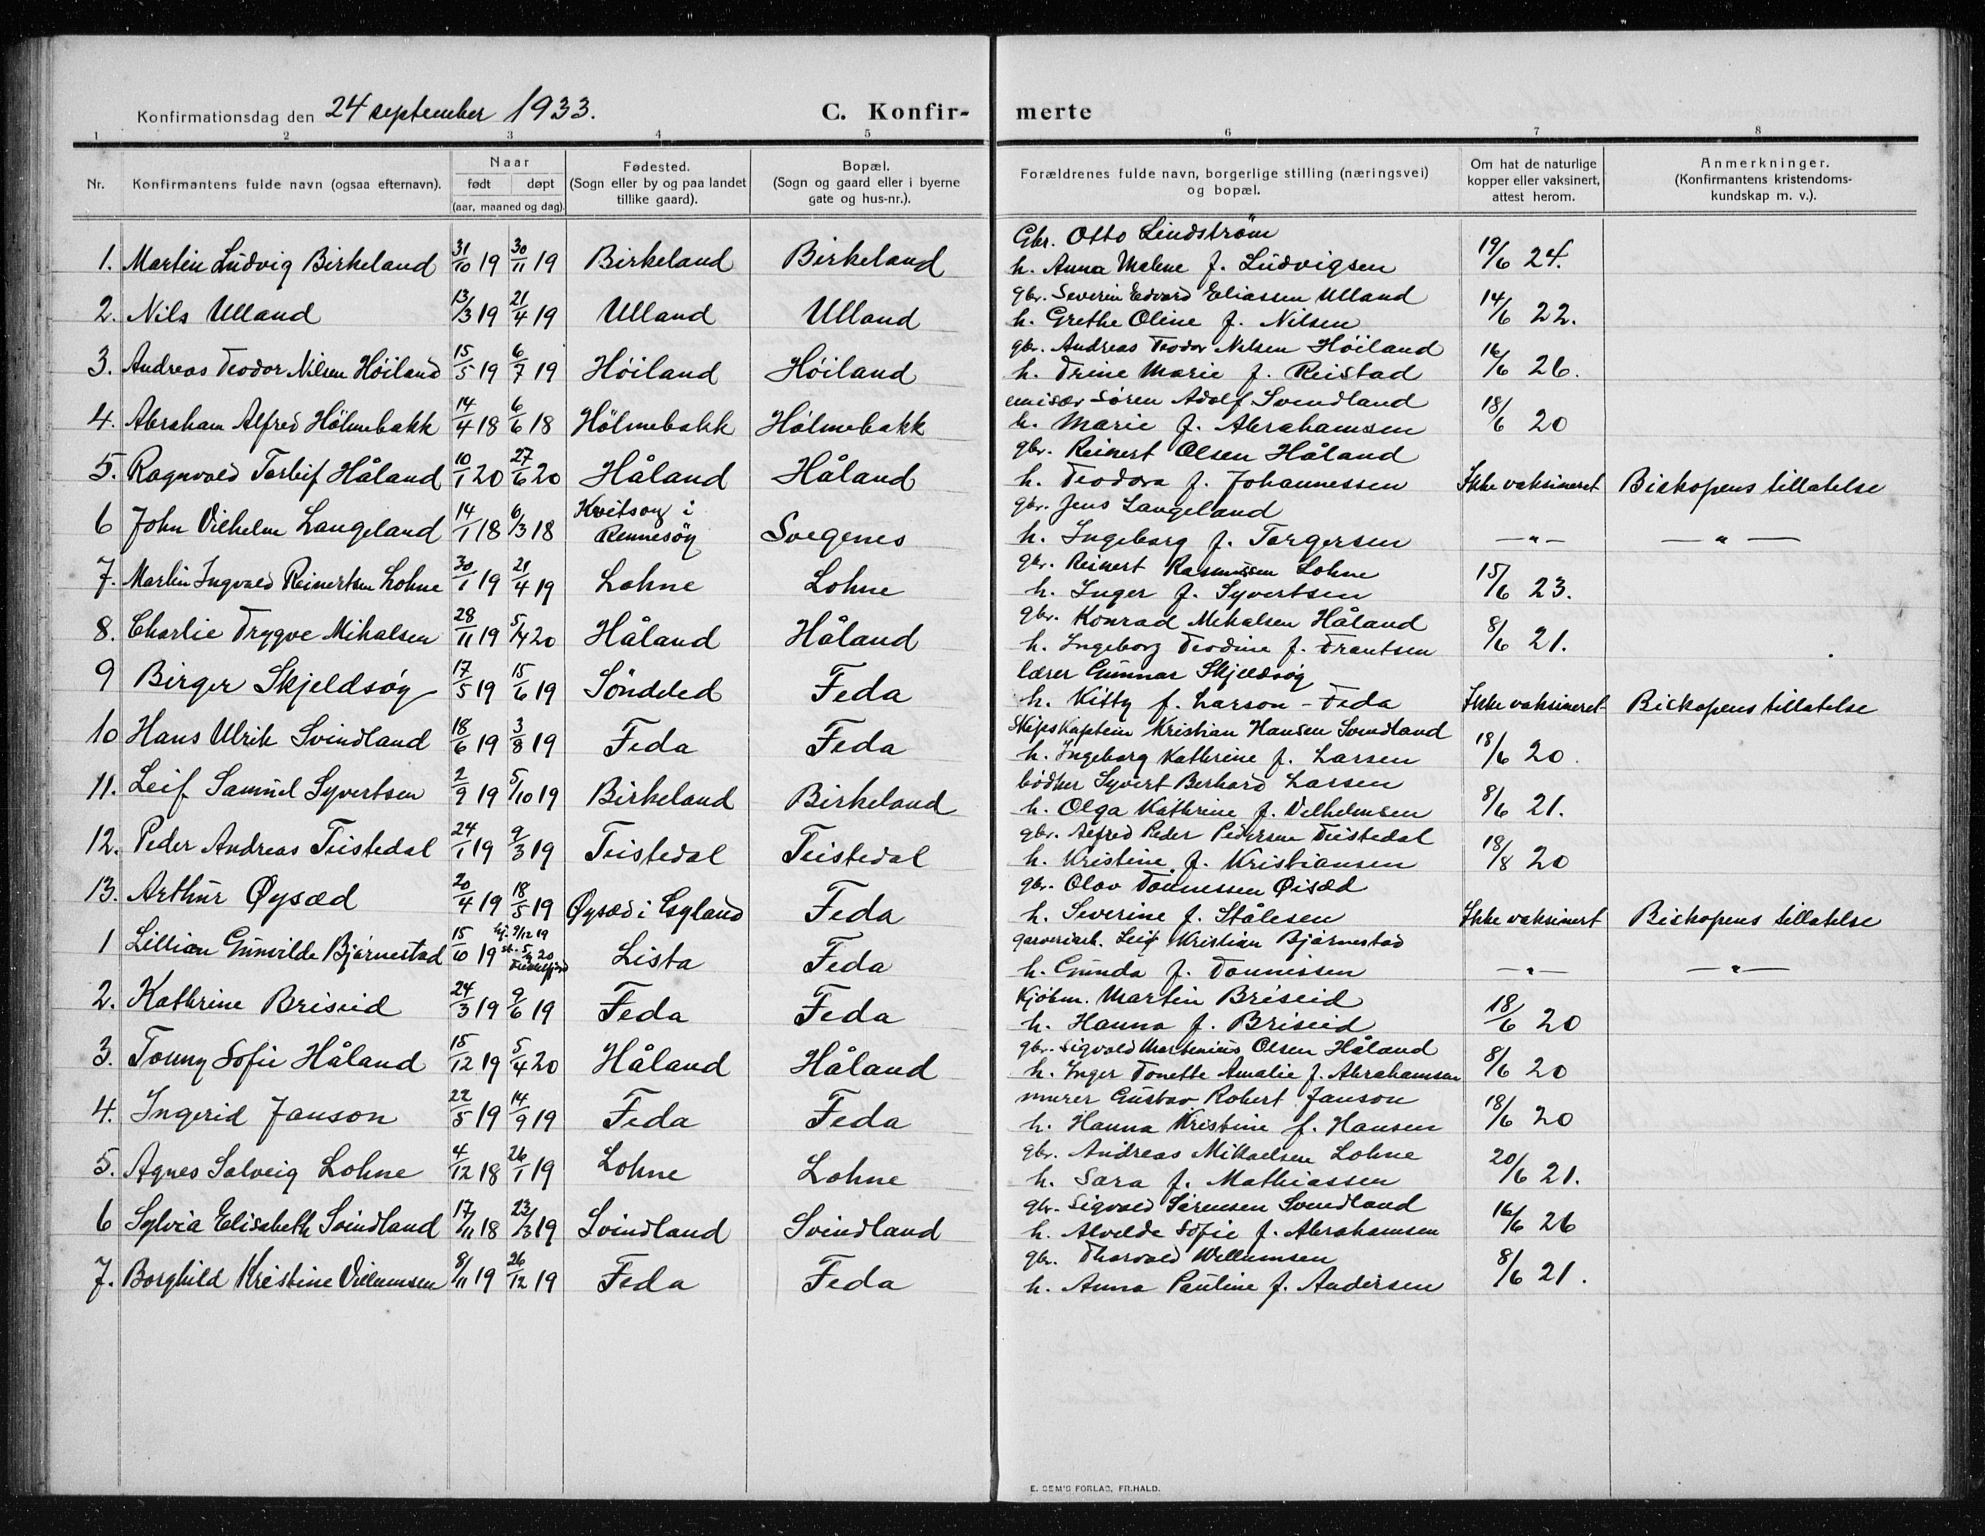 Konfirmationsdag den 24 september 1933. C. Konfir- merte
1 2 3 4 5 6 7 8
Nr. Konfirmantens fulde navn (ogsaa efternavn). Naar født døpt (aar, maaned og dag). Fødested. (Sogn eller by og paa landet tillike gaard). Bopæl. (Sogn og gaard eller i byerne gate og hus-nr.). Forældrenes fulde navn, borgerlige stilling (næringsvei) og bopæl. Om hat de naturlige kopper eller vaksinert, attest herom. Anmerkninger. (Konfirmantens kristendoms- kundskap m. v.).
Gbr. Otto Lindstrøm
1. Martin Ludvig Birkeland 31/10 19 30/11 19 Birkeland Birkeland h. Anna Malene f. Ludvigsen 19/6 24.
gbr. Severin Edvard Eliassen Ulland
2. Nils Ulland 13/3 19 21/4 19 Ulland Ulland h. Grethe Oline f. Nilsen 14/6 22.
gbr. Andreas Teodor Nilsen Høiland
3. Andreas Teodor Nilsen Høiland 15/5 19 6/7 19 Høiland Høiland h. Trine Marie f. Reistad 16/6 26.
emisær Søren Adolf Svindland
4. Abraham Alfred Hölmebakk 14/4 18 6/6 18 Hölmebakk Hölmebakk h. Marie f. Abrahamsen 18/6 20
gbr. Reinert Olsen Håland
5. Ragnvald Torleif Håland 10/1 20 27/6 20 Håland Håland h. Teodora f. Johannessen Ikke vaksineret Biskopens tillatelse
gbr. Jens Langeland
6 John Vilhelm Langeland 14/1 18 6/3 18 Kvitsøy i Rennesöy Svegenes h. Ingeborg f. Torgersen —"— —"—
gbr. Reinert Rasmussen Lohne
7. Martin Ingvald Reinertsen Lohne 30/1 19 21/4 19 Lohne Lohne h. Inger f. Syvertsen 15/6 23.
gbr. Konrad Mikalsen Håland
8. Charlie Trygve Mikalsen 28/11 19 5/4 20 Håland Håland h. Ingeborg Teodine f. Frantsen 8/6 21.
lærer Gunnar Skjeldsøy
9 Birger Skjeldsøy 17/5 19 15/6 19 Söndeled Feda h. Kitty f. Larson - Feda Ikke vaksineret Biskopens tillatelse
Skipskaptein Kristian Hansen Svindland
10 Hans Ulrik Svindland 18/6 19 3/8 19 Feda Feda h. Ingeborg Kathrine f. Larsen 18/6 20.
bødker Syvert Berhard Larsen
11. Leif Samuel Syvertsen 2/9 19 5/10 19 Birkeland Birkeland h. Olga Kathrine f. Vilhelmsen 8/6 21.
gbr. Alfred Peder Pedersen Teistedal
12. Peder Andreas Teistedal 24/1 19 9/3 19 Teistedal Teistedal h. Kristine f. Kristiansen 18/8 20
gbr. Olav Tønnessen Øisæd
13. Arthur Øysæd 20/4 19 18/5 19 Øysæd i Gyland Feda h. Severine f. Stålesen Ikke vaksinert Biskopens tillatelse
garveriarb. Leif Kristian Bjørnestad
1 Lillian Gunvilde Bjørnestad 15/10 19 hj. 9/12 19 st. 5/4 20 Lista Feda h. Gunda f. Tønnissen —"— —"—
Kjøbm. Martin Briseid
2. Kathrine Briseid 24/3 19 9/6 19 Feda Feda h. Hanna f. Briseid 18/6 20
gbr. Sigvald Martinius Olsen Håland
3. Tonny Sofie Håland 15/12 19 5/4 20 Håland Håland h. Inger Tonette Amalie f. Abrahamsen 8/6 20
murer Gustav Robert Janson
4. Ingerid Janson 22/5 19 14/9 19 Feda Feda h. Hanna Kristine f. Hansen 18/6 20
gbr. Andreas Mikaelsen Lohne
5. Agnes Solveig Lohne 4/12 18 26/1 19 Lohne Lohne h. Sara f. Mathiassen 20/6 21.
gbr. Sigvald Sørensen Svindland
6 Sylvia Elisabeth Svindland 17/11 18 23/3 19 Svindland Svindland h. Alvilde Sofie f. Abrahamsen 16/6 26
gbr. Thorvald Willumsen
7. Borghild Kristine Vilumsen 8/11 19 26/12 19 Feda Feda h. Anna Pauline f. Andersen 8/6 21.
E. SEM'S FORLAG, FR.HALD.